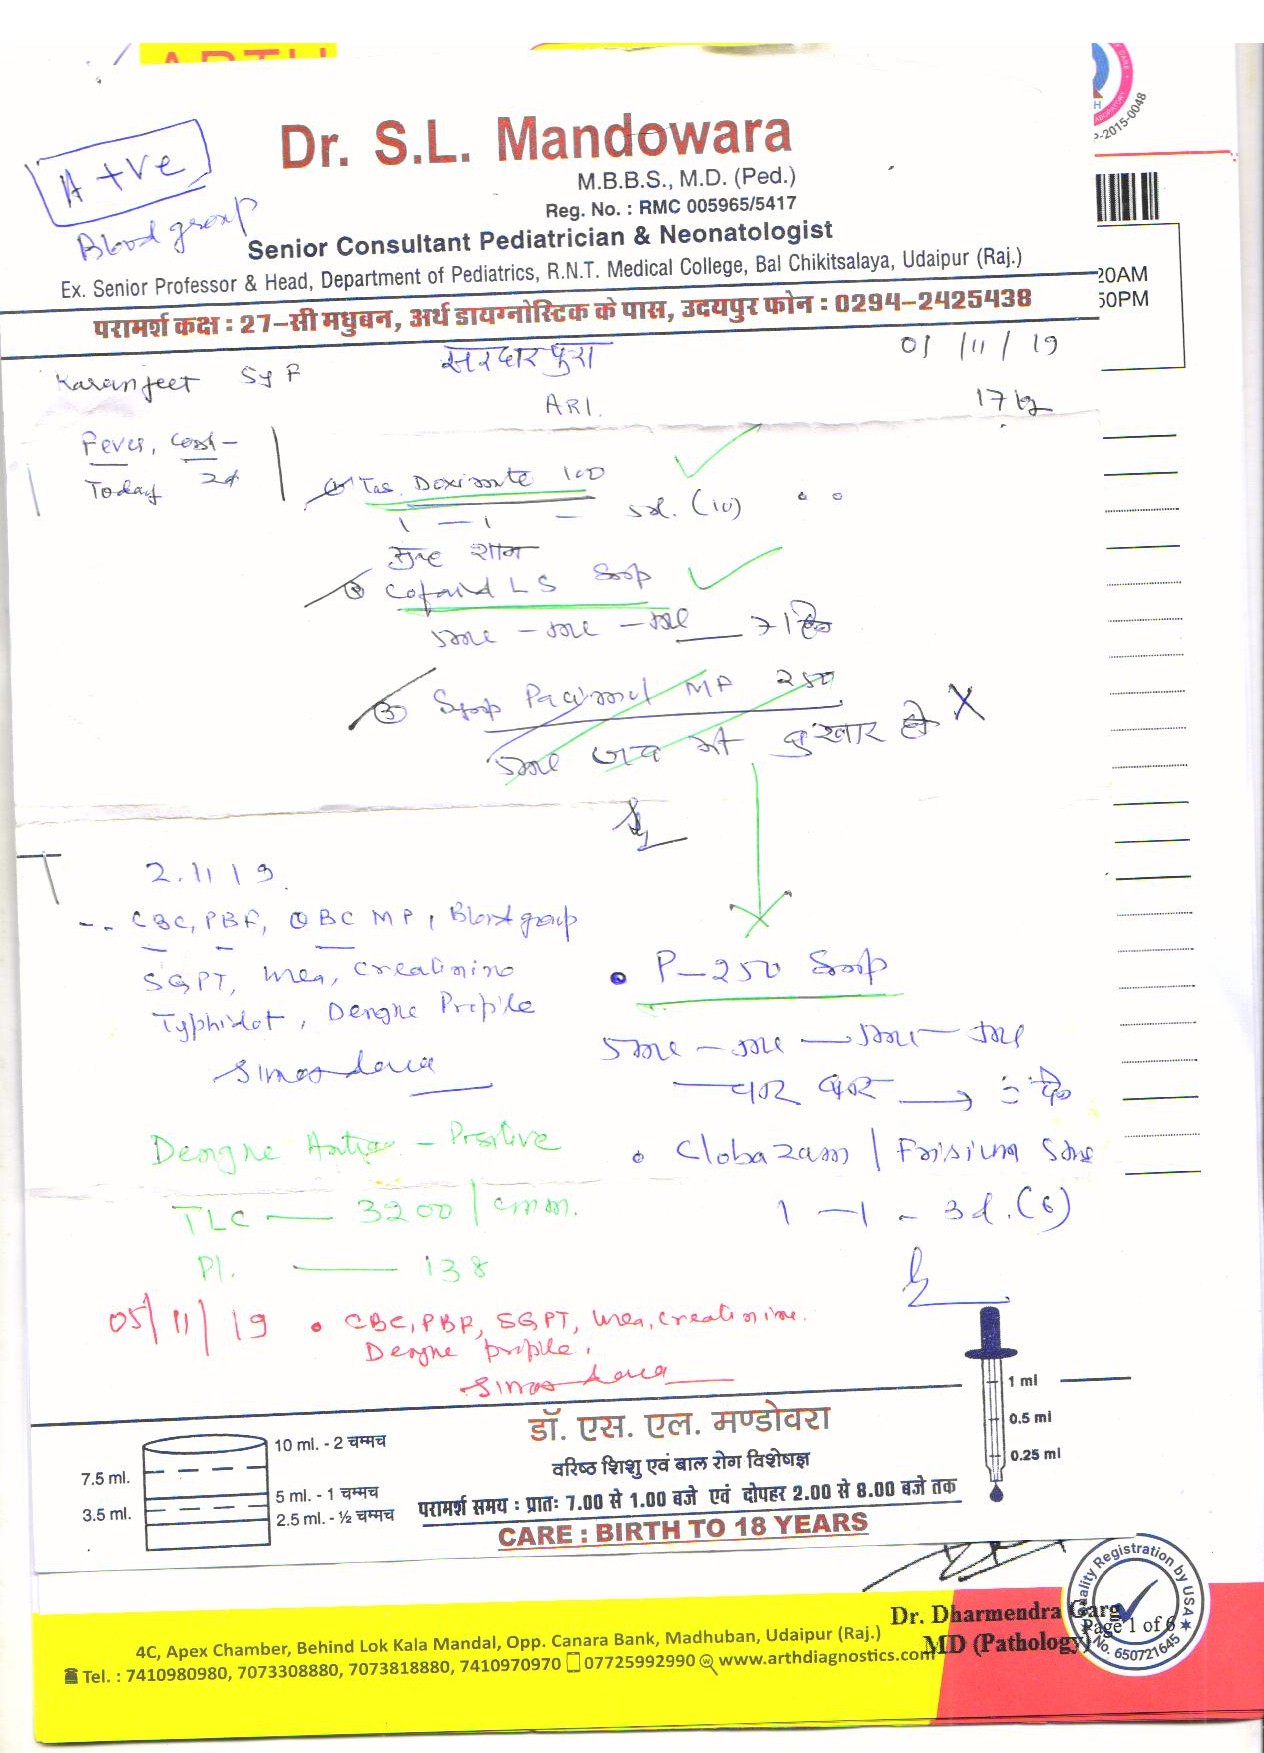 A +ve
Blood group
Dr. S.L. Mandowara
M.B.B.S., M.D. (Ped.)
Reg. No. : RMC 005965/5417
Senior Consultant Pediatrician & Neonatologist
Ex. Senior Professor & Head, Department of Pediatrics, R.N.T. Medical College, Bal Chikitsalaya, Udaipur (Raj.)
परामर्श कक्ष : 27-सी मधुबन, अर्थ डायग्नोस्टिक के पास, उदयपुर फोन : 0294-2425438
P-2015-0048
20AM
50PM
Karanjeet 5y F
सरदारपुरा
01/11/19
ARI.
17 kg
Fever,
Today 2d
① Tab. 100
1 — 1 — 5d. (10)
शाम
② LS Syrup
5ml - 5ml - 5ml
③ Syrup MP 250
5ml जब भी बुखार हो X
2.11.19
CBC, PBF, QBC MP, Blood group
SGPT, Urea, Creatinine
Typhidot, Dengue Profile
P-250 Syrup
5ml - 5ml - 5ml - 5ml
Dengue - Positive
Clobazam / Frisium 5mg
TLC — 3200/cmm.
1 — 1 - 3d. (6)
Pl. — 138
05/11/19 • CBC, PBF, SGPT, Urea, Creatinine.
Dengue profile,
1 ml
0.5 ml
0.25 ml
10 ml. - 2 चम्मच
7.5 ml.
5 ml. - 1 चम्मच
3.5 ml.
2.5 ml. - ½ चम्मच
डॉ. एस. एल. मण्डोवरा
वरिष्ठ शिशु एवं बाल रोग विशेषज्ञ
परामर्श समय : प्रातः 7.00 से 1.00 बजे एवं दोपहर 2.00 से 8.00 बजे तक
CARE : BIRTH TO 18 YEARS
Dr. Dharmendra Garg
MD (Pathology)
Page 1 of 6
ality Registration by USA
No. 650721645
4C, Apex Chamber, Behind Lok Kala Mandal, Opp. Canara Bank, Madhuban, Udaipur (Raj.)
Tel. : 7410980980, 7073308880, 7073818880, 7410970970 07725992990 www.arthdiagnostics.com